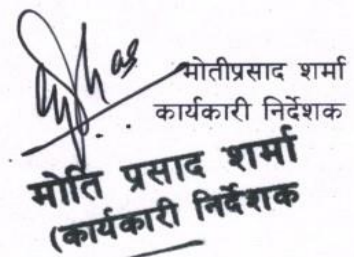 मोतीप्रसाद शर्मा
कार्यकारी निर्देशक
मोति प्रसाद शर्मा
(कार्यकारी निर्देशक